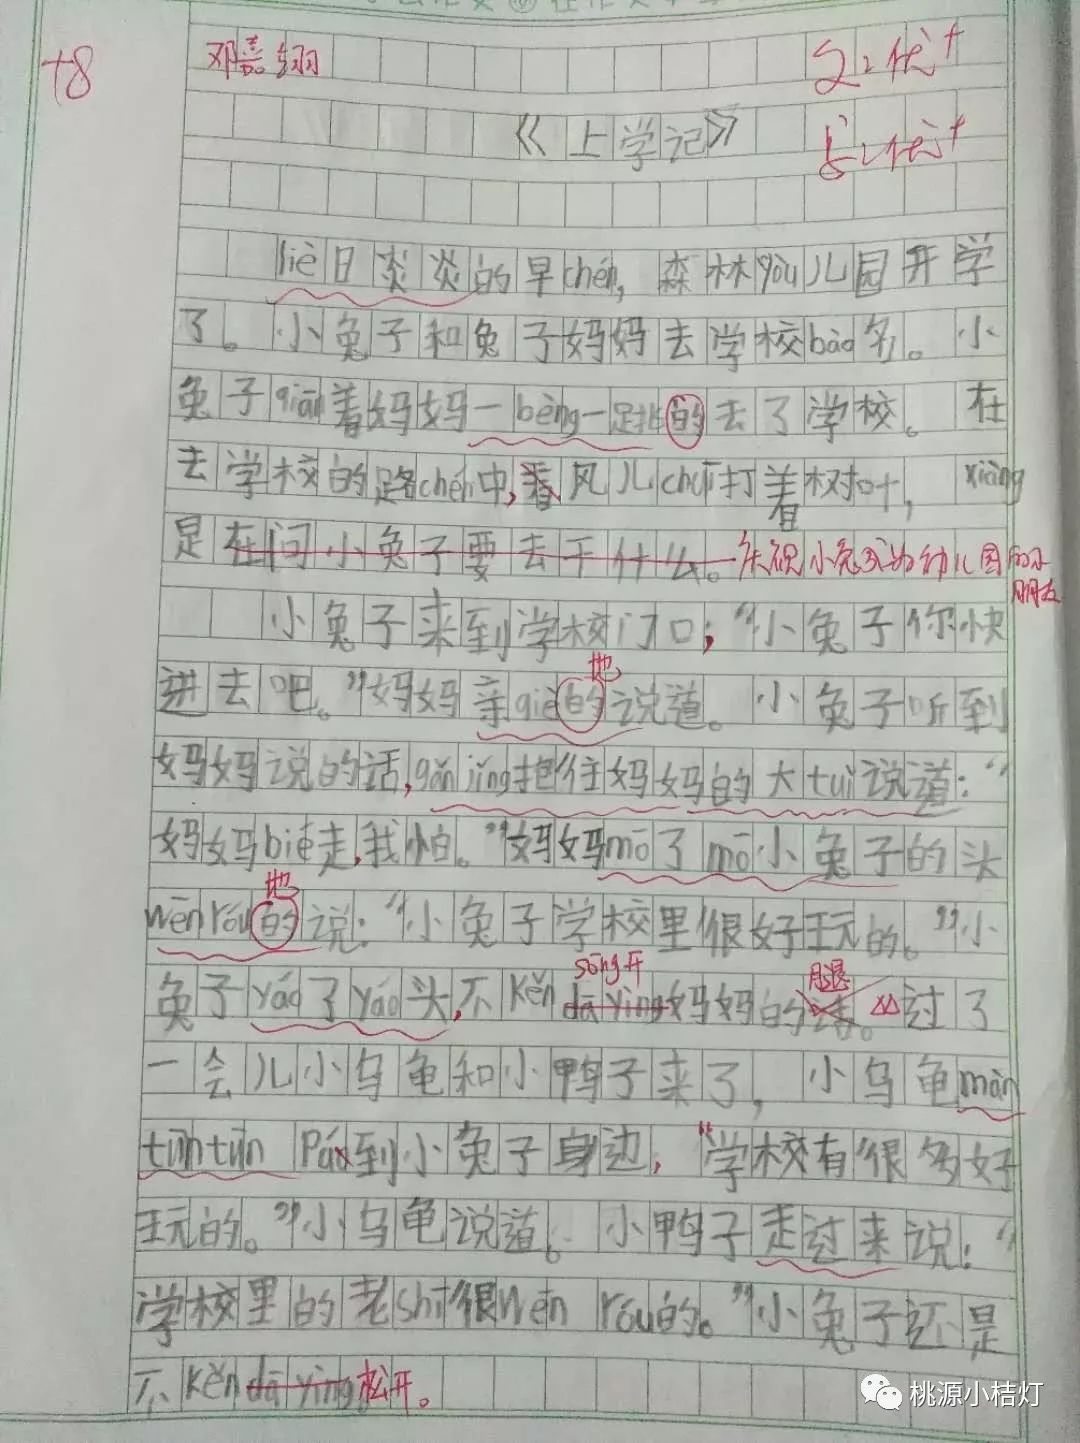 +8
邓嘉翊
文:优+
《上学记》
书:优+
liè日炎炎的早chén，森林yòu儿园开学
了。小兔子和兔子妈妈去学校bào名。小
兔子qiān着妈妈一bèng一跳的去了学校。在
去学校的路chén中，看风儿chuī打着树叶，xiàng
是在问小兔子要去干什么。庆祝小兔成为幼儿园的小朋友
小兔子来到学校门口；“小兔子你快
地
进去吧。”妈妈亲qiè的说道。小兔子听到
妈妈说的话，gǎn jǐng抱住妈妈的大tuǐ说道：“
妈妈bié走，我怕。”妈妈mō了mō小兔子的头
地
wēn róu的说：“小兔子学校里很好玩的。”小
sōng开 腿
兔子yáo了yáo头，不kěn dā yìng妈妈的话。过了
一会儿小乌龟和小鸭子来了，小乌龟màn
tūn tūn pá到小兔子身边，“学校有很多好
玩的。”小乌龟说道。小鸭子走过来说：“
学校里的老shī很wēn róu的。”小兔子还是
不kěn dā yìng松开。
桃源小桔灯